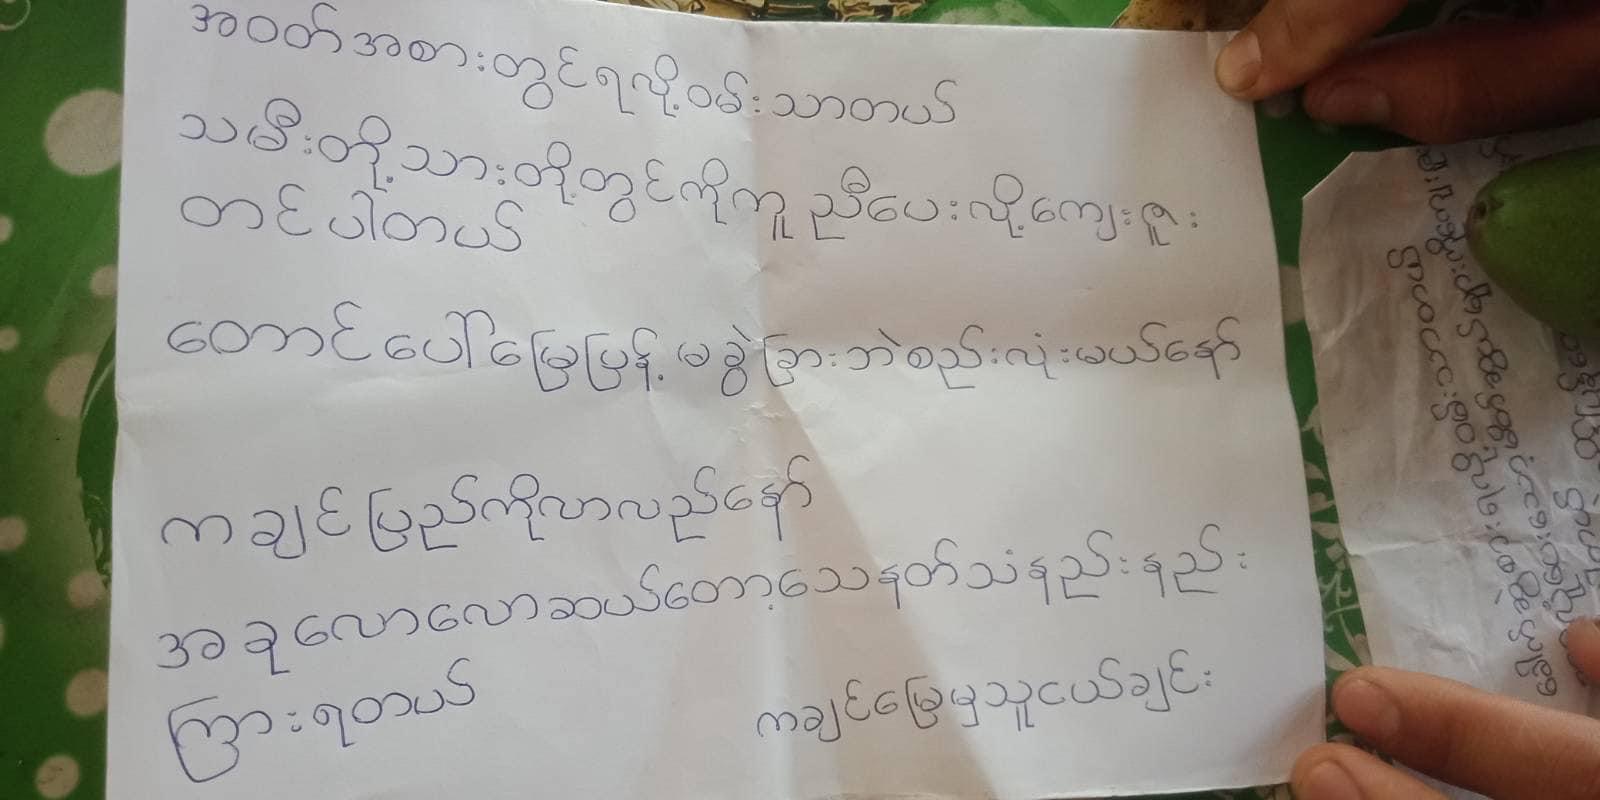 အဝတ်အစားတွင်ရလို့ဝမ်းသာတယ်
သမီးတို့သားတို့တွင်ကိုကူညီပေးလို့ကျေးဇူး
တင်ပါတယ်
တောင်ပေါ်မြေပြန့်မခွဲခြားဘဲစည်းလုံးမယ်နော်
ကချင်ပြည်ကိုလာလည်နော်
အခုလောလောဆယ်တော့သေနတ်သံနည်းနည်း
ကြားရတယ်
ကချင်မြေမှသူငယ်ချင်း